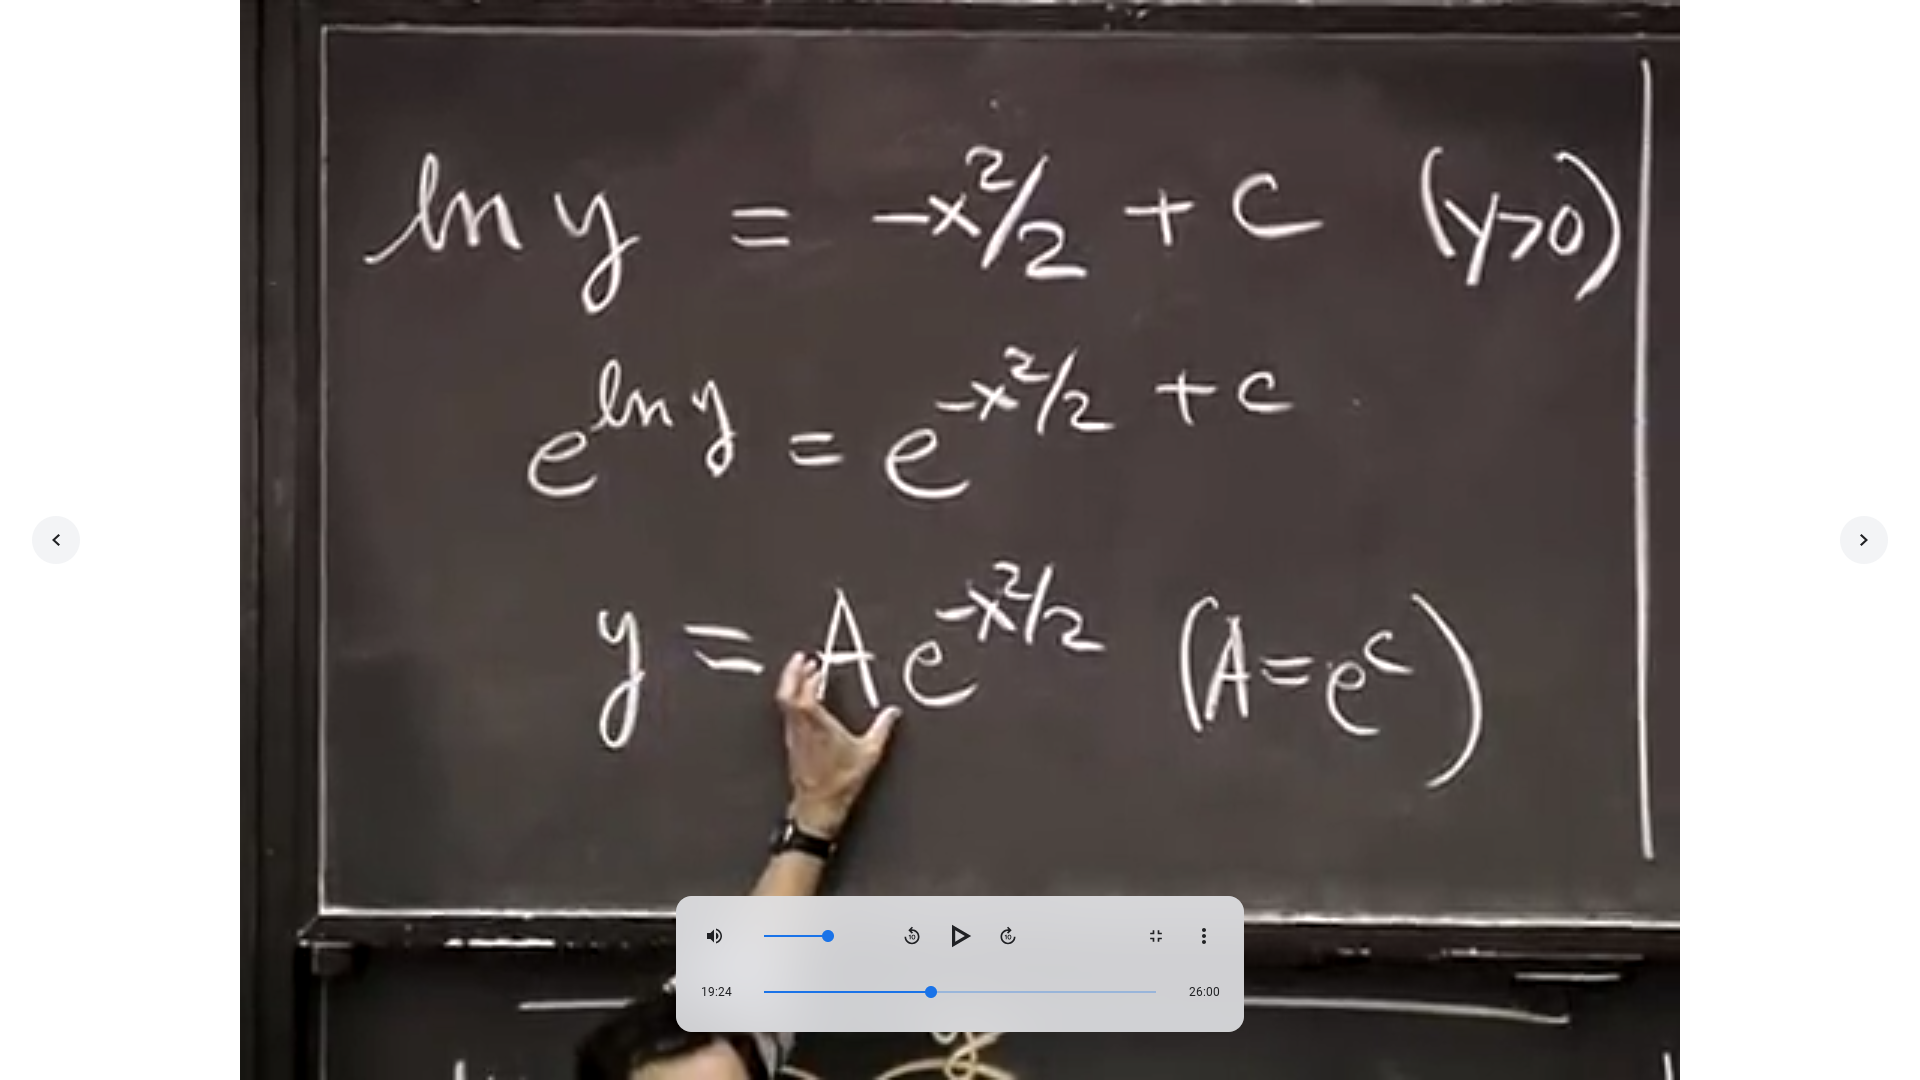 ln y = -x²/2 + c (y>0)
e^(ln y) = e^(-x²/2 + c)
y = A e^(-x²/2) (A = e^c)
10 10
19:24 26:00